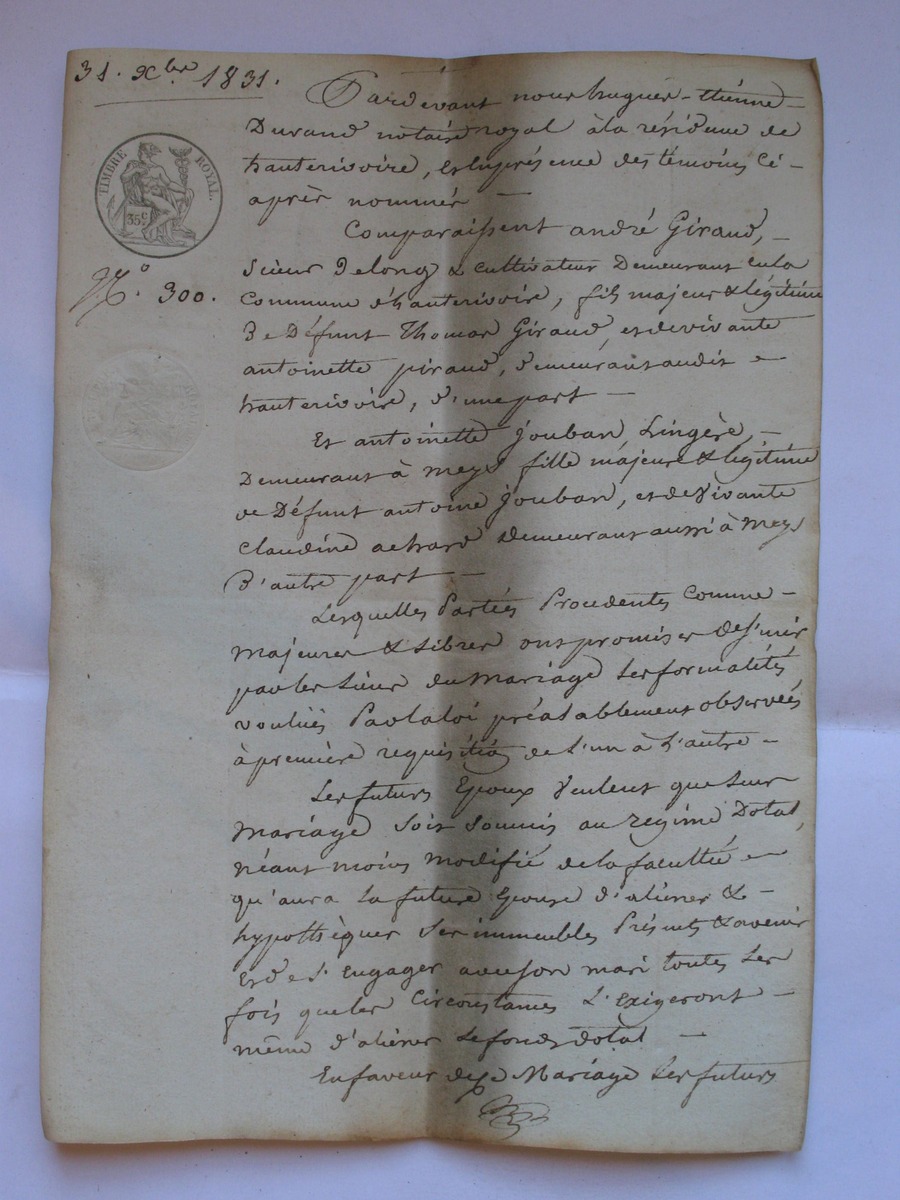 31. Xbre 1831.
TIMBRE ROYAL.
35 c
N.º 300.
Pardevant nous hugues-étienne
Durand notaire royal à la résidence de
hauterivoire, et en présence des témoins ci-
après nommés —
Comparaissent andré Giraud, —
Scieur De long & cultivateur Demeurant en la
Commune d'hauterivoire, fils majeur & légitime
De Défunt Thomas Giraud, et de vivante
antoinette piraud, demeurant audit
hauterivoire, d'une part —
Et antoinette Jouban Lingère, —
Demeurant à meys fille majeure & légitime
de Défunt antoine Jouban, et de Vivante
Claudine achard Demeurant aussi à Meys
D'autre part —
Lesquelles Parties Procedentes Comme —
Majeures & Libres ont promis de s'unir
par les Liens du Mariage Les formalités
voulués Par la loi préalablement observées
à première requisition de L'un à L'autre —
Les futurs Epoux Veulent que Leur
Mariage Soit Soumis au regime Dotal,
néant moins Modifié de la faculté
qu'aura La future Epouse d'aliéner & —
hypothèquer Ses immeubles Présents & avenir
Et de s'Engager avec son mari toutes Les
fois que les Circonstances L'Exigeront —
même d'aliéner Le fonds dotal —
En faveur de Mariage Les futurs